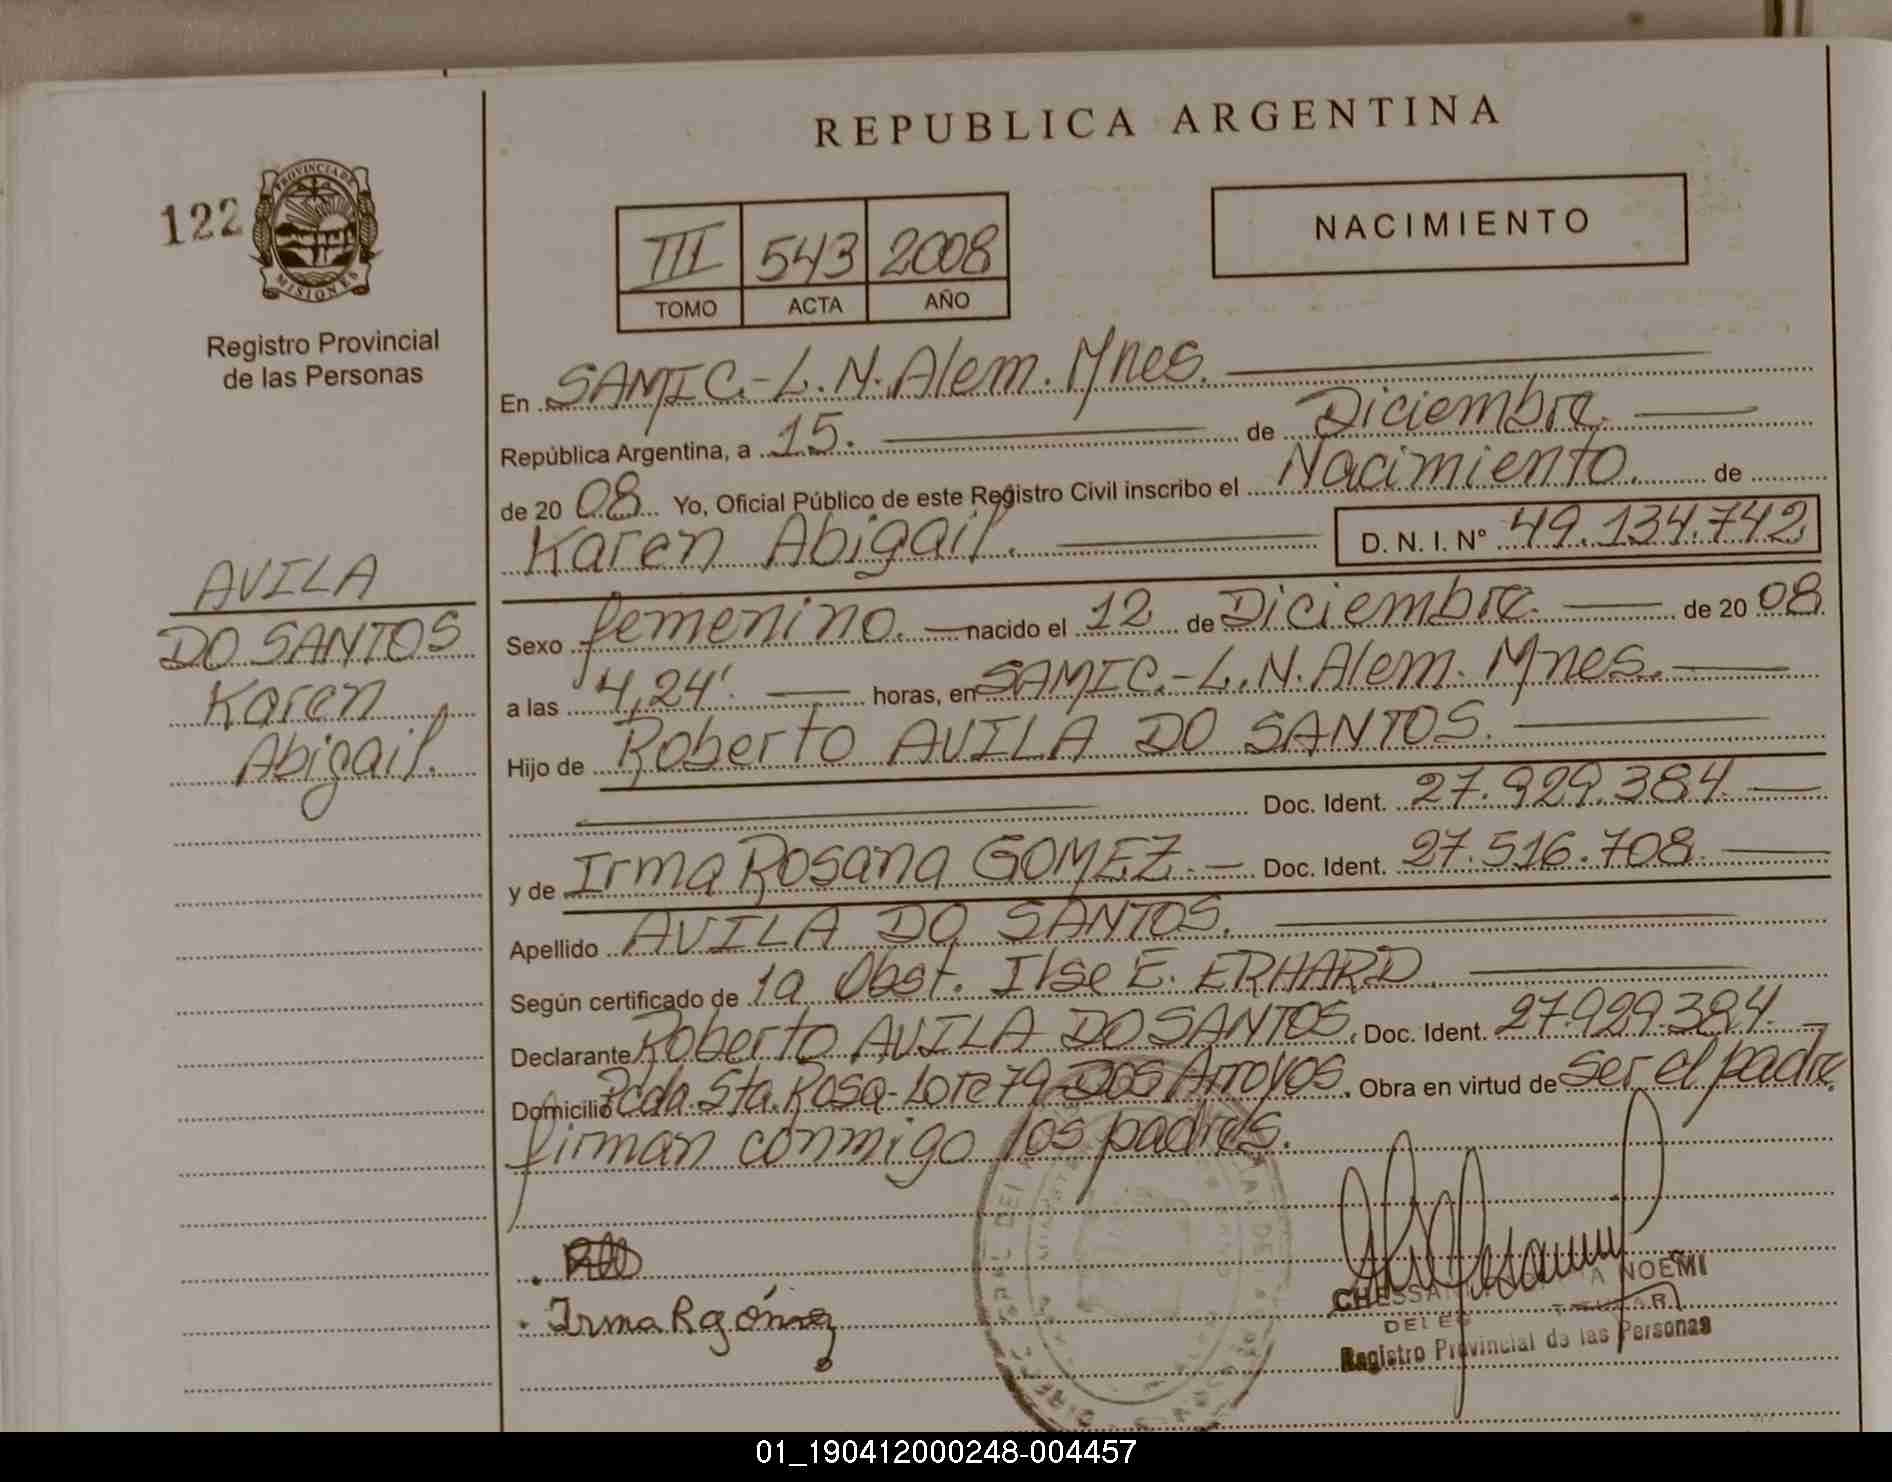 REPUBLICA ARGENTINA
122
PROVINCIA DE
MISIONES
Registro Provincial
de las Personas
III 543 2008
TOMO ACTA AÑO
NACIMIENTO
En SAMIC.-L.N.Alem.Mnes.
República Argentina, a 15. de Diciembre.
de 2008 Yo, Oficial Público de este Registro Civil inscribo el Nacimiento. de
Karen Abigail. D. N. I. Nº 49.134.742
AVILA
DO SANTOS
Karen
Abigail.
Sexo femenino. nacido el 12 de Diciembre. de 2008
a las 4,24'. horas, en SAMIC.-L.N.Alem. Mnes.
Hijo de Roberto AVILA DO SANTOS.
Doc. Ident. 27.929.384
y de Irma Rosana GOMEZ. Doc. Ident. 27.516.708
Apellido AVILA DO SANTOS.
Según certificado de la Obst. Ilse E. ERHARD.
Declarante Roberto AVILA DO SANTOS, Doc. Ident. 27.929.384
Domicilio Pcda. Sta. Rosa-Lote 79-Dos Arroyos. Obra en virtud de ser el padre,
firman conmigo los padres.
Irma R gómez
NOEMI
TITULAR
Registro Provincial de las Personas
01_190412000248-004457